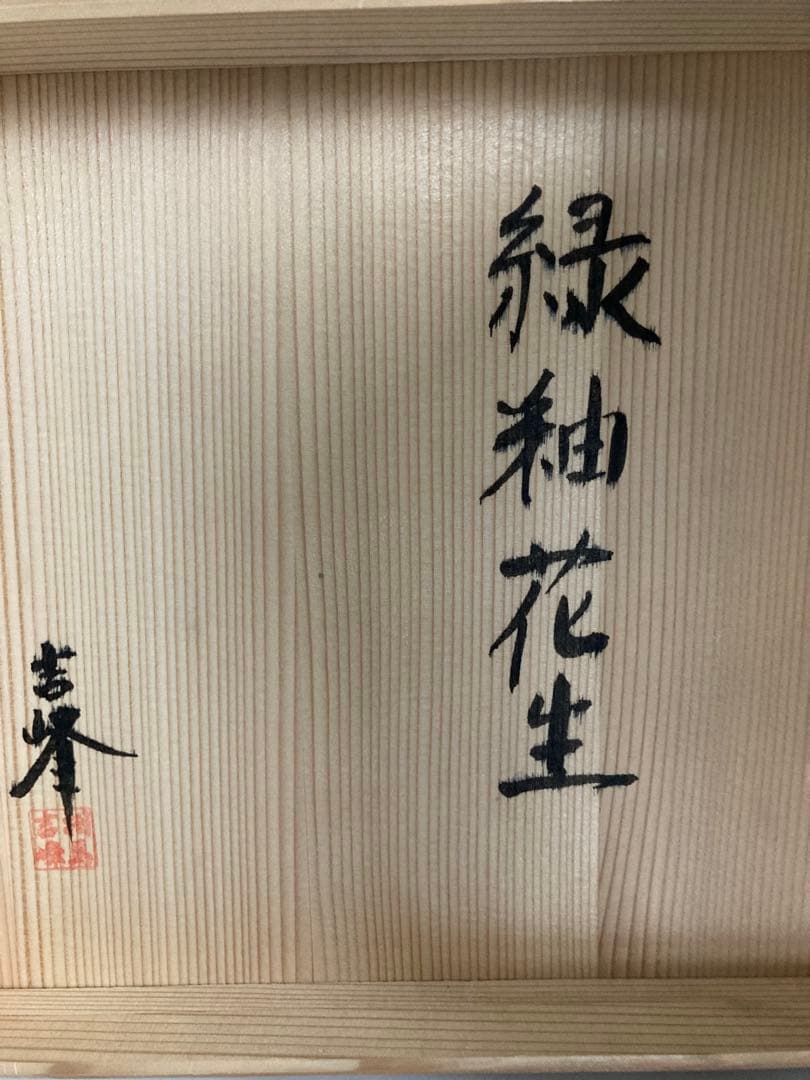 緑釉花生
吉峰